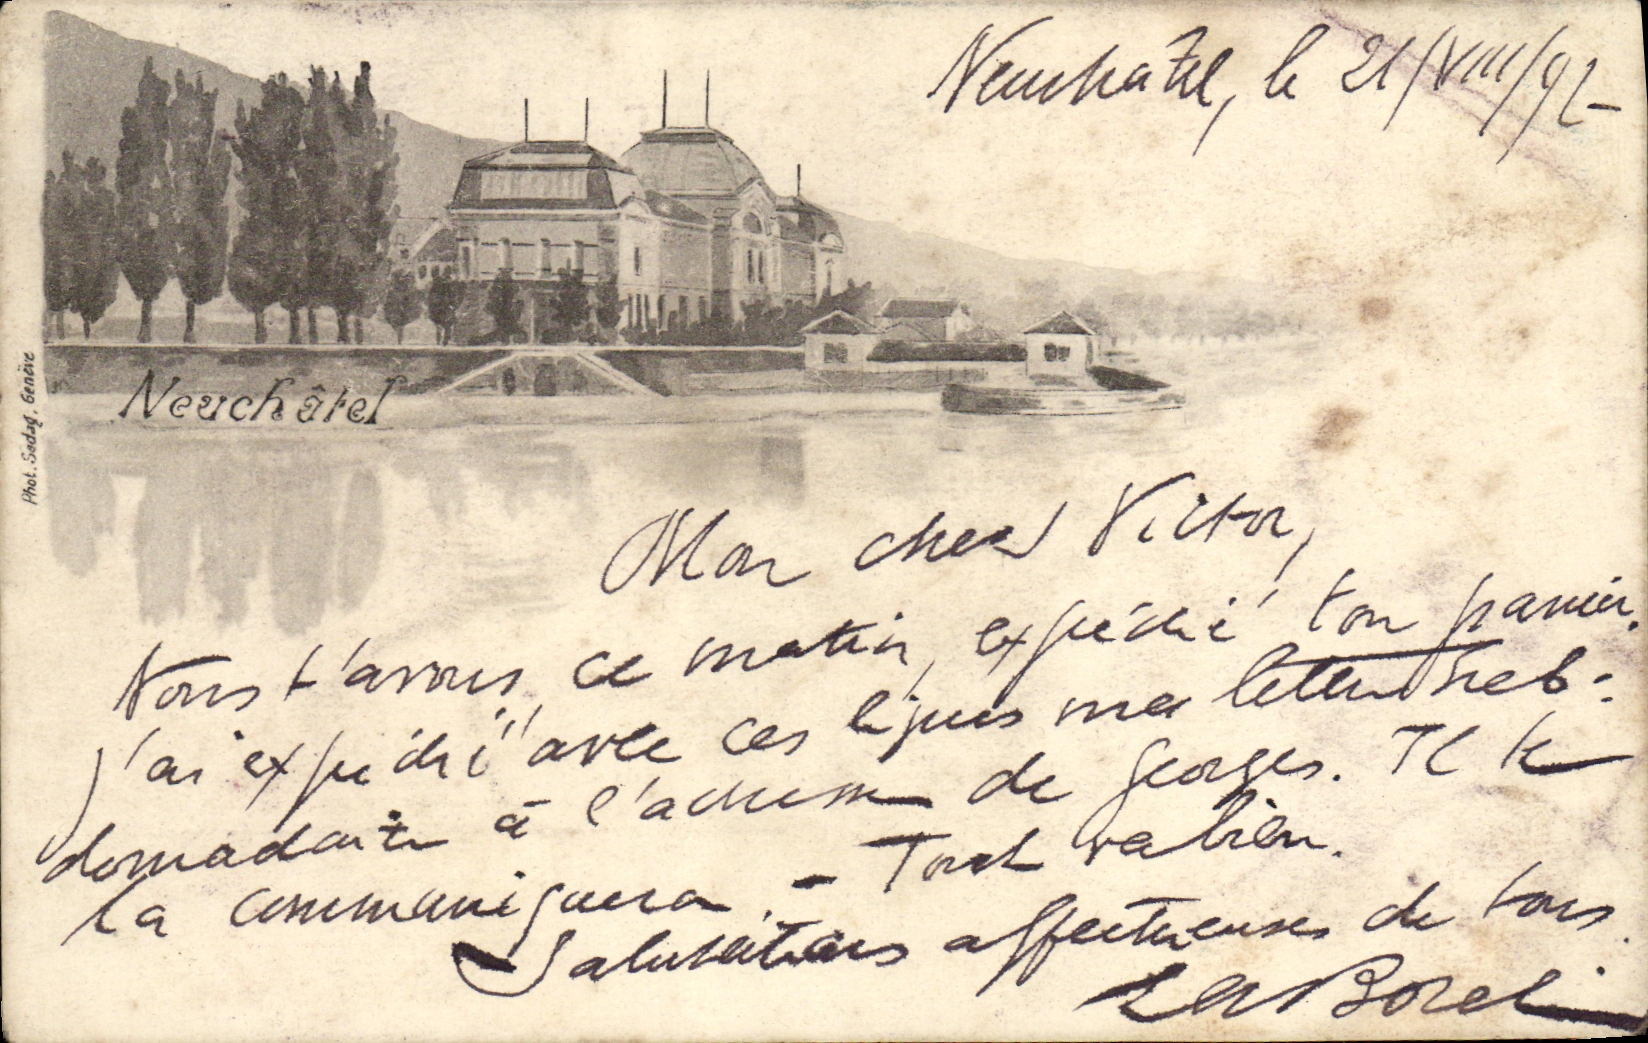 Neuchâtel, le 21/VIII/97
Neuchâtel
Phot. Sadag, Genève
Mon cher Victor,
Nous t'avons, ce matin, expédié ton panier.
J'ai expédié avec ces lignes ma lettre heb-
domadaire à l'adresse de Georges. Il te
la communiquera. - Tout va bien.
Salutations affectueuses de tous.
Borel